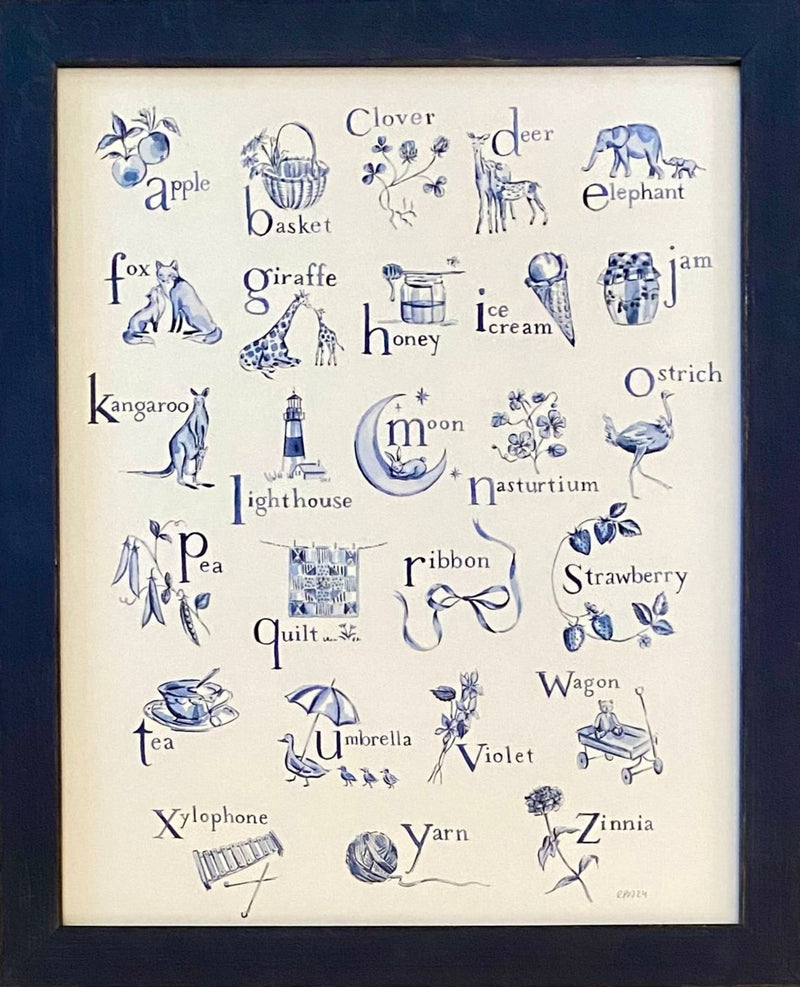 apple
basket
Clover
deer
elephant
fox
giraffe
honey
ice
cream
jam
kangaroo
lighthouse
moon
nasturtium
Ostrich
Pea
quilt
ribbon
Strawberry
tea
umbrella
Violet
Wagon
Xylophone
Yarn
Zinnia